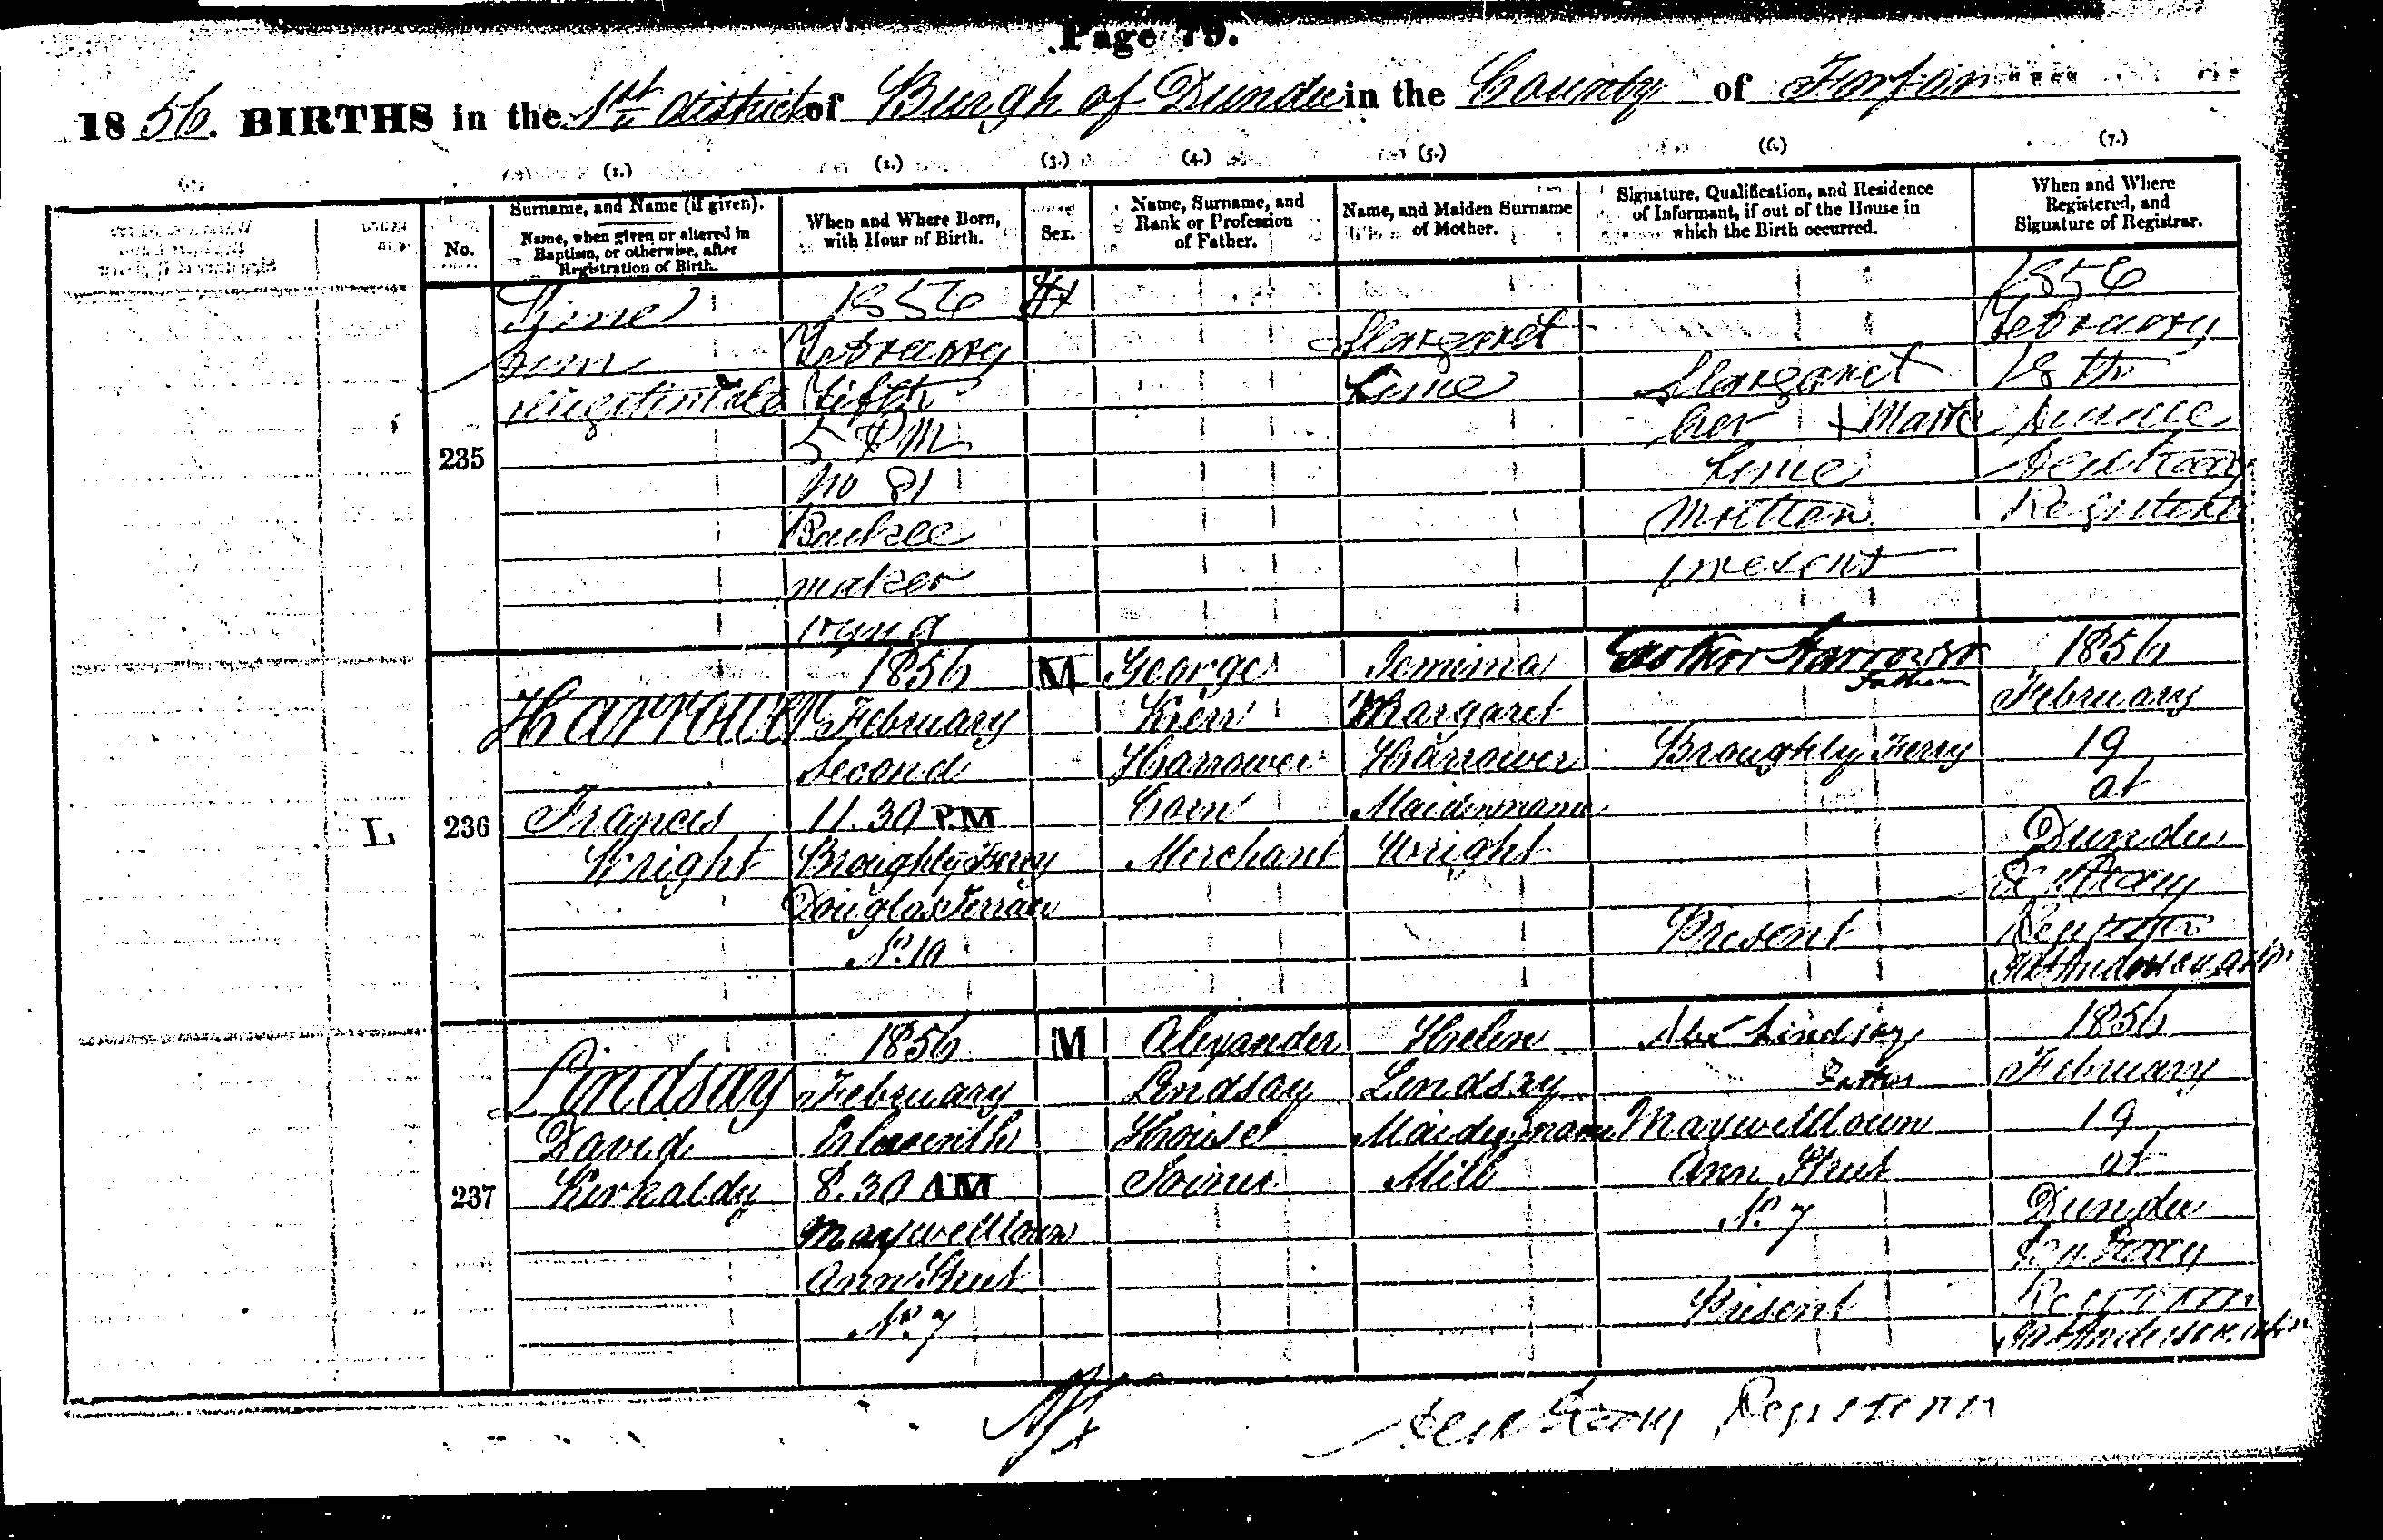 Page 79.
1856. BIRTHS in the 1st District of Burgh of Dundee in the County of Forfar
(1.) (2.) (3.) (4.) (5.) (6.) (7.)
No.
Surname, and Name (if given).
Name, when given or altered in
Baptism, or otherwise, after
Registration of Birth.
When and Where Born,
with Hour of Birth.
Sex.
Name, Surname, and
Rank or Profession
of Father.
Name, and Maiden Surname
of Mother.
Signature, Qualification, and Residence
of Informant, if out of the House in
which the Birth occurred.
When and Where
Registered, and
Signature of Registrar.
235
1856
February
Fifth
5 PM
No 81
maker
Margaret
Margaret
her + Mark
Mother
present
1856
February
18th
Registrar
L
236
Harrower
Francis
Wright
1856
February
Second
11.30 PM
Broughty Ferry
Douglas Terrace
No. 10
M
George
Kerr
Harrower
Corn
Merchant
Jemima
Margaret
Harrower
Maidenname
Wright
Geo Kerr Harrower
Father
Broughty Ferry
Present
1856
February
19
at
Dundee
Registrar
237
Lindsay
David
Kirkaldy
1856
February
Eleventh
8.30 AM
Maxwelltown
Ann Street
No. 7
M
Alexander
Lindsay
House
Joiner
Helen
Lindsay
Maidenname
Mill
Alex Lindsay
Father
Maxwelltown
Ann Street
No. 7
Present
1856
February
19
at
Dundee
Registrar
Registrar